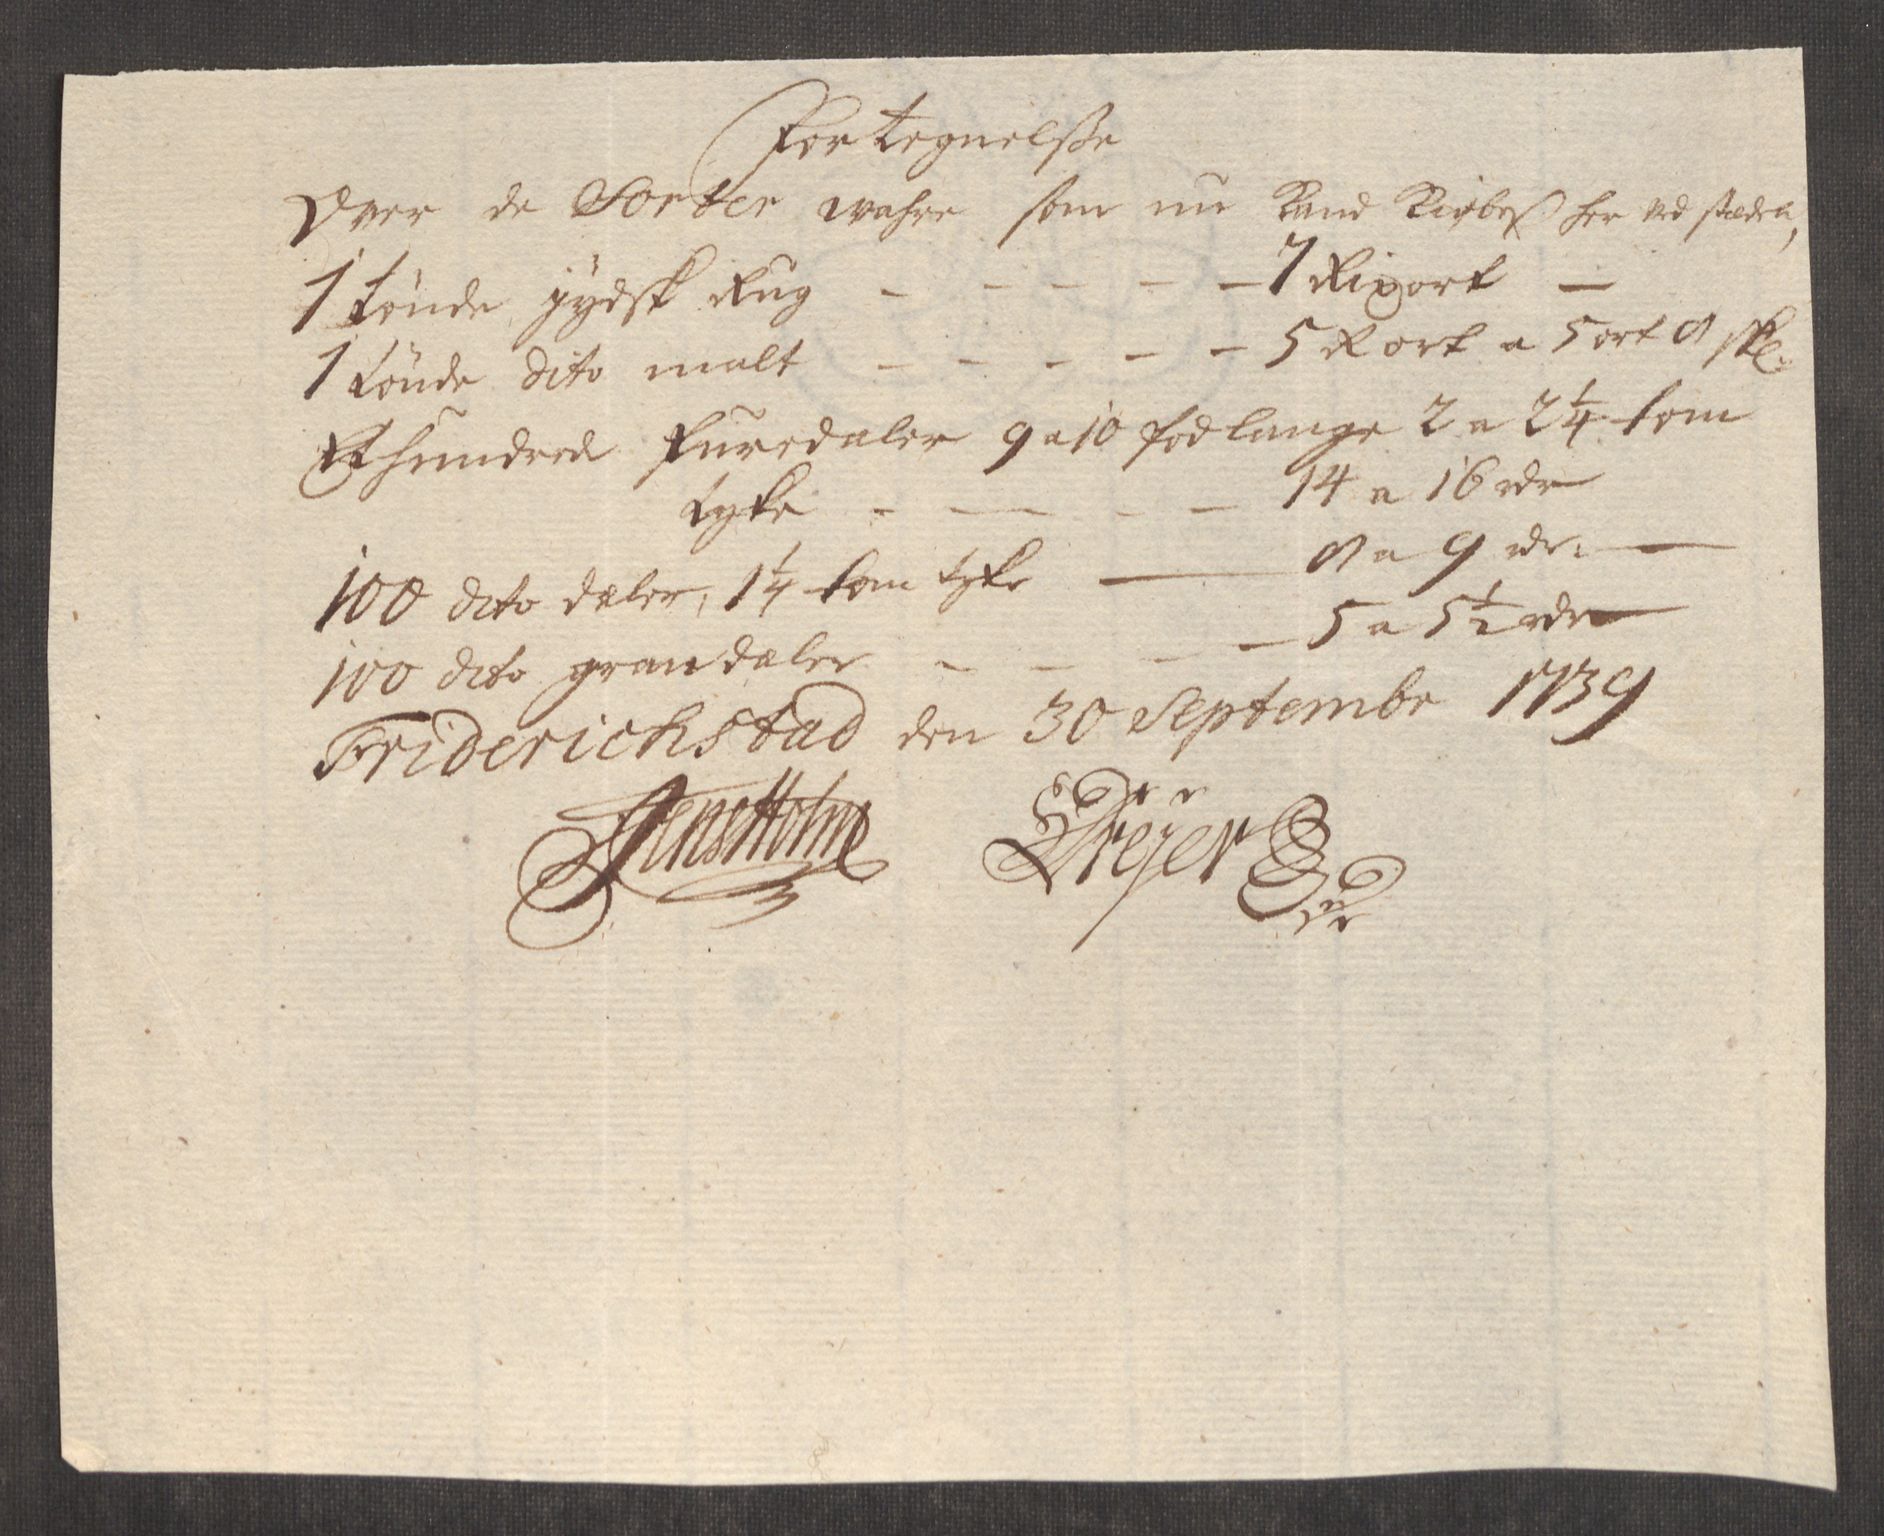 Fortegnelsse
Over de Sorter wahre som nu Kand Kiøbes her ved stæden,
1 tønde jydsk Rug - - - - - 7 Rixort -
1 tønde dito malt - - - - - 5 Rort a 5 ort 8 skl:
Et hundrede furedæler 9 a 10 fod lange 2 a 2 1/4 tom
tyke - - - - - 14 a 16 rdr
100 dito dæler, 1 1/4 tom tyke - 8 a 9 rdr:
100 dito gran dæler - - - - 5 a 5 1/2 rdr
Friderichstad den 30 Septembr 1739
Jens Holm Dreÿer